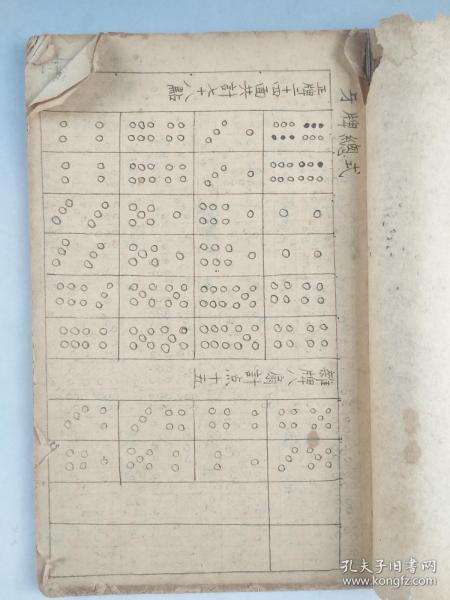 牙牌總式
正牌二十四面共計七十八點
雜牌八扇計点十五
孔夫子旧书网
www.kongfz.com